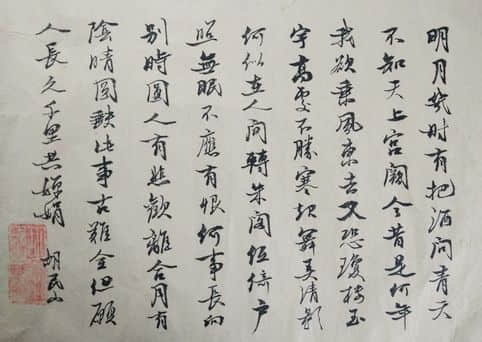 明月幾时有把酒问青天
不知天上宫阙今昔是何年
我欲乘风来去又恐瓊楼玉
宇高处不勝寒起舞弄清影
何似在人间轉朱阁低倚户
照無眠不應有恨何事長向
别時圆人有悲歡離合月有
陰晴圆缺此事古難全但願
人長久千里共嬋娟 胡民山